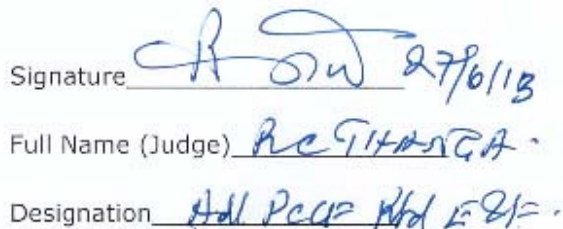 Signature 27/6/13
Full Name (Judge) R C THANGA.
Designation Addl PCCF